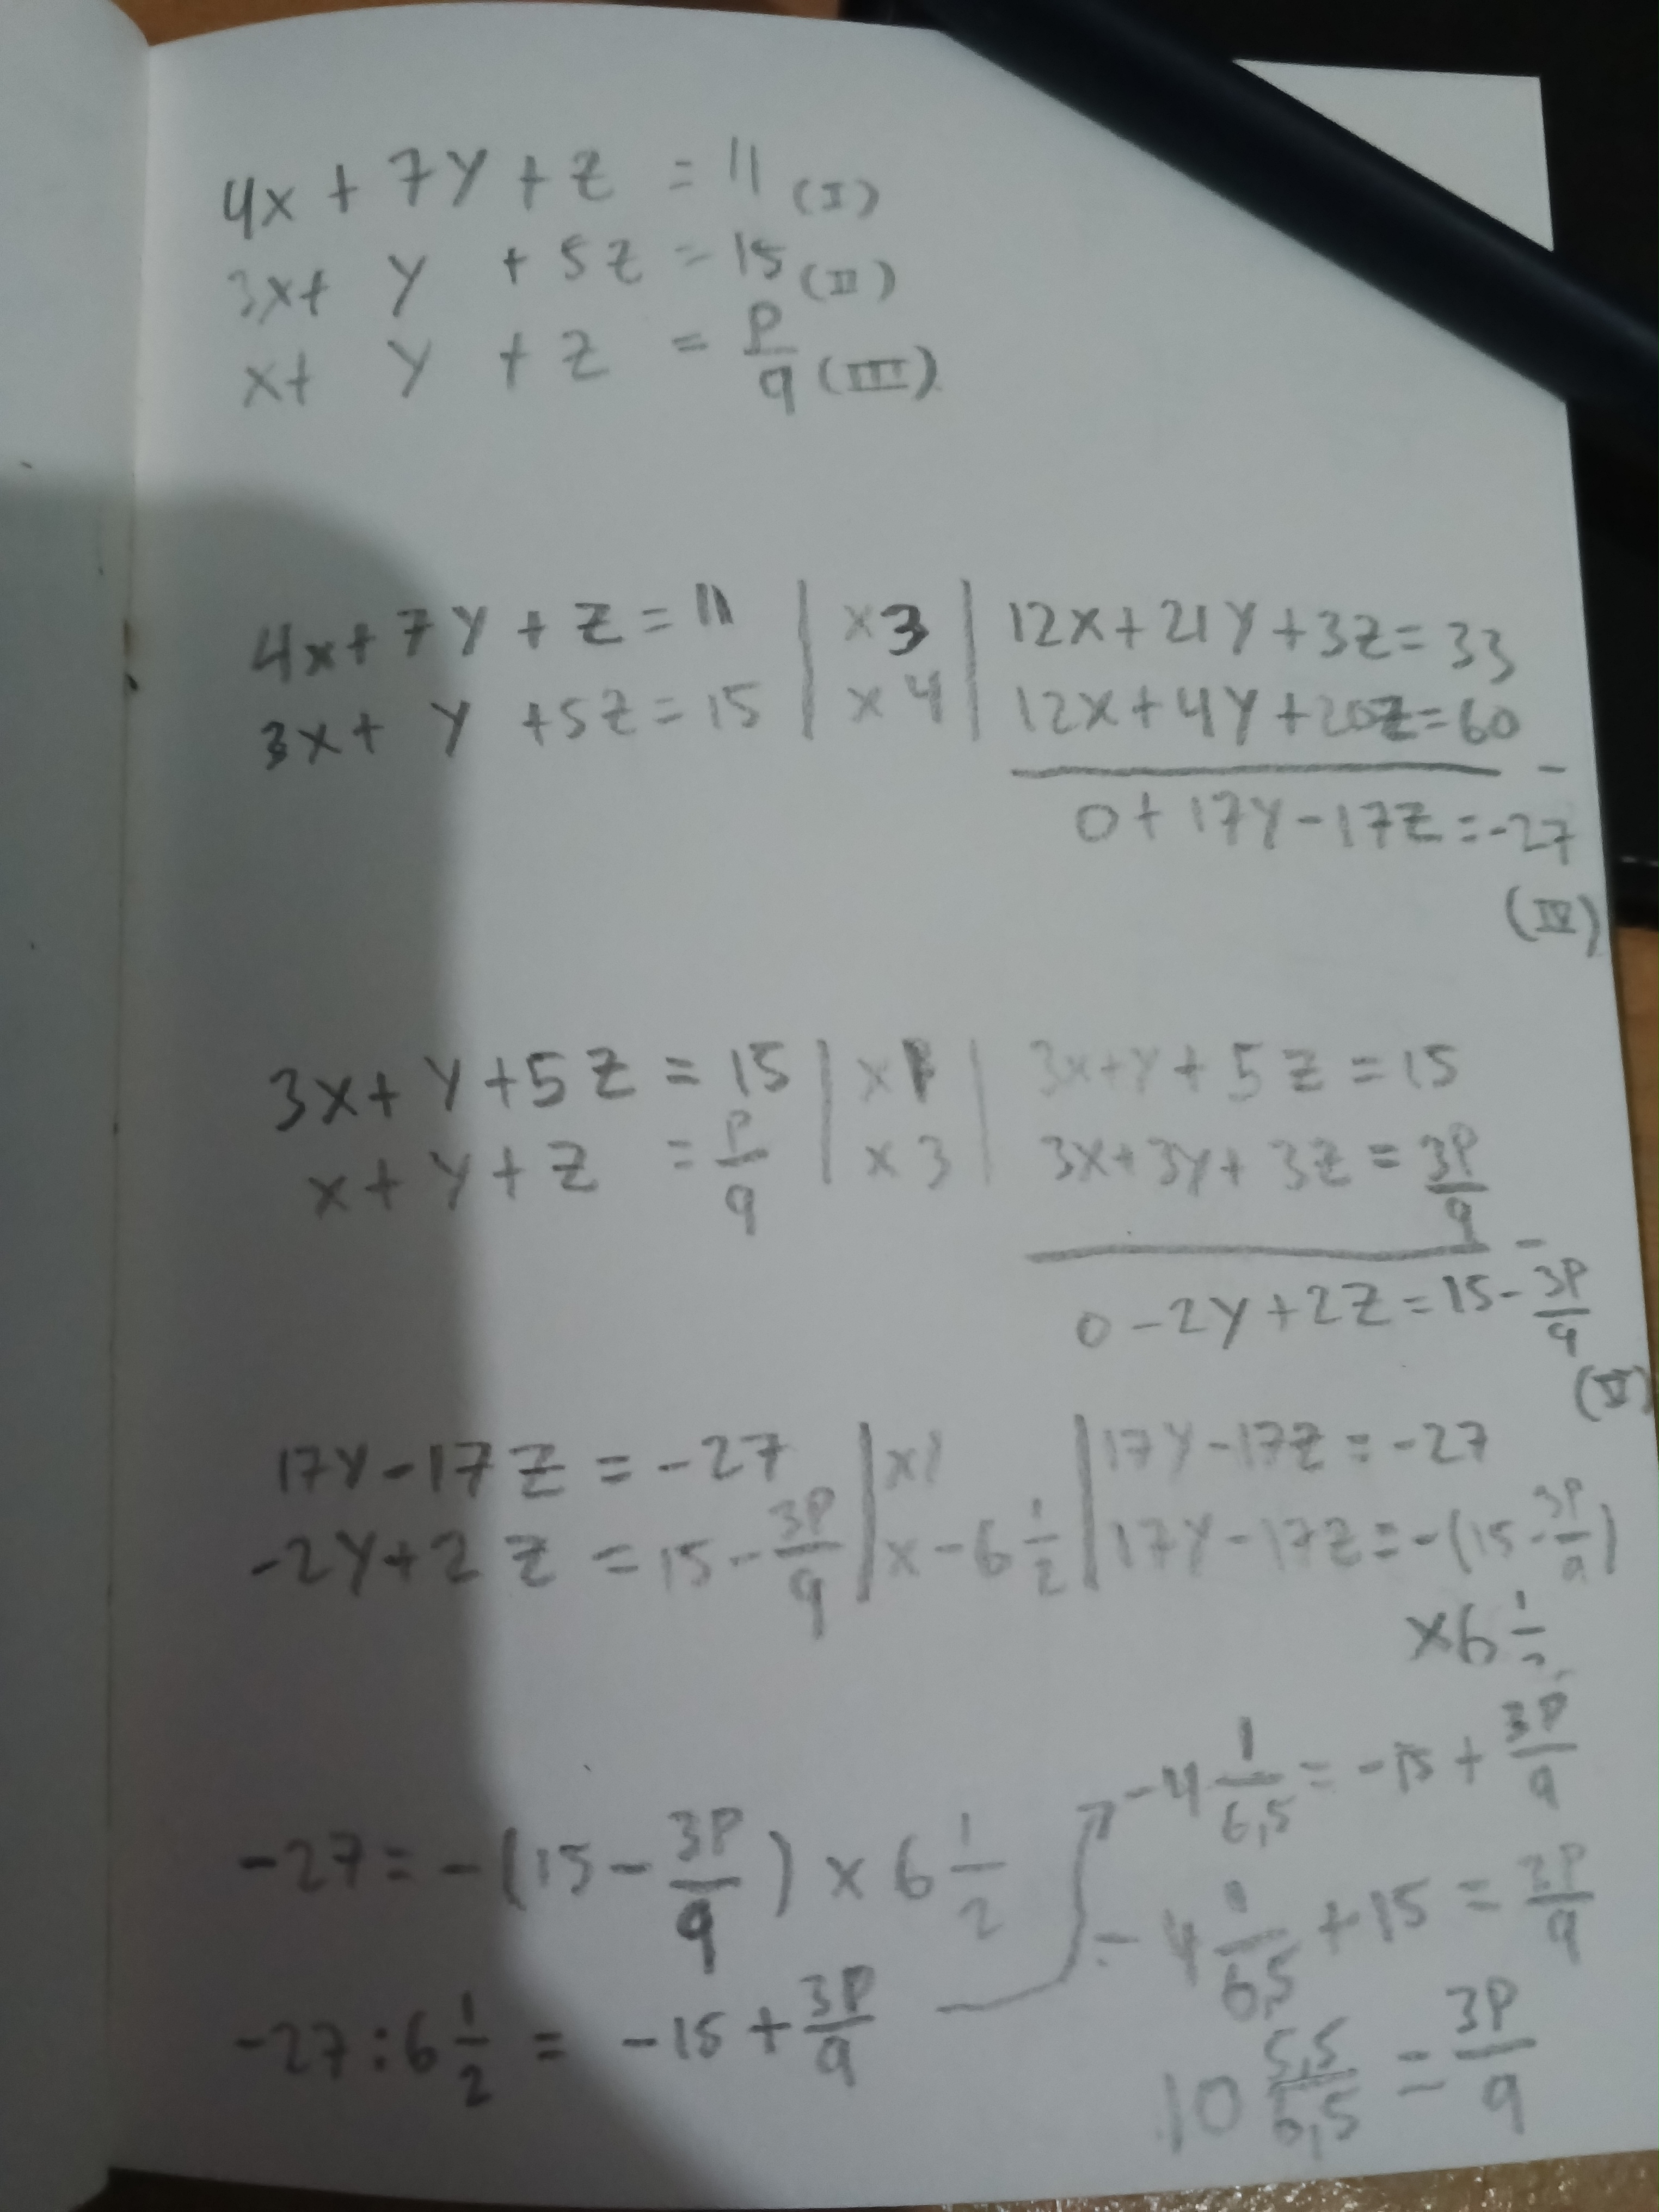 4x + 7y + z = 11 (I)
3x + y + 5z = 15 (II)
x + y + z = p/q (III)
4x + 7y + z = 11 | x 3 | 12x + 21y + 3z = 33
3x + y + 5z = 15 | x 4 | 12x + 4y + 20z = 60
-
0 + 17y - 17z = -27
(IV)
3x + y + 5z = 15 | x 1 | 3x + y + 5z = 15
x + y + z = p/q | x 3 | 3x + 3y + 3z = 3p/q
-
0 - 2y + 2z = 15 - 3p/q
(V)
17y - 17z = -27 | x 1 | 17y - 17z = -27
-2y + 2z = 15 - 3p/q | x -6 1/2 | 17y - 17z = -(15 - 3p/q)
x 6 1/2
-27 = -(15 - 3p/q) x 6 1/2
-27 : 6 1/2 = -15 + 3p/q
-4 1/6,5 = -15 + 3p/q
-4 1/6,5 + 15 = 3p/q
10 5,5/6,5 = 3p/q